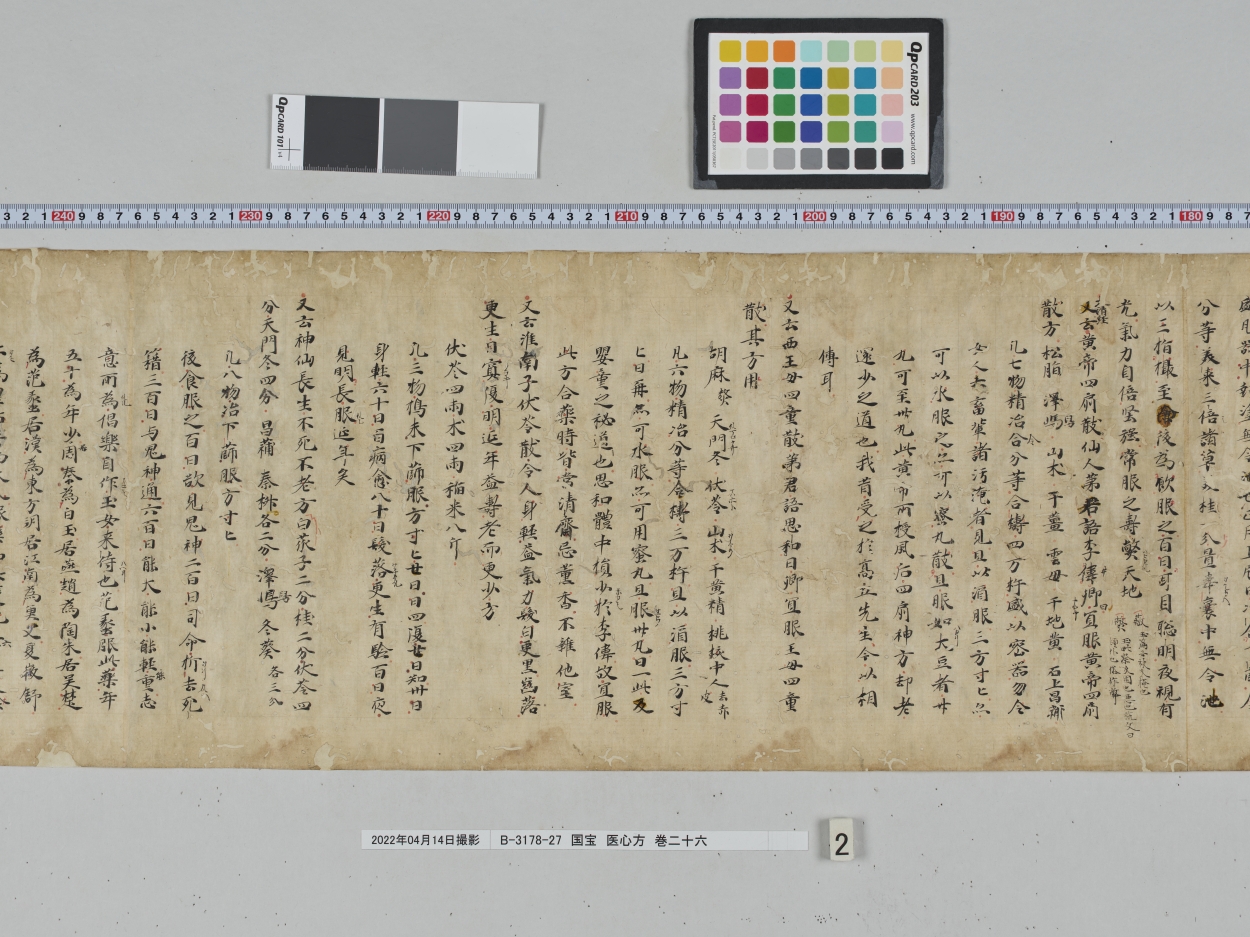 QPCARD 101 v4
QPCARD 203 www.qpcard.com
3 2 1 240 9 8 7 6 5 4 3 2 1 230 9 8 7 6 5 4 3 2 1 220 9 8 7 6 5 4 3 2 1 210 9 8 7 6 5 4 3 2 1 200 9 8 7 6 5 4 3 2 1 190 9 8 7 6 5 4 3 2 1 180 9 8 7
分等美来三倍諸草入桂一分量韋囊中無令池
以三指撮至後為飲服之百日耳目聡明夜視有
光氣力自倍堅強常服之壽弊天地
又云黄帝四扇散仙人茅君語李偉卿宜服黄帝四扇
散方 松脂 澤寫 山木 干薑 雲母 干地黄 石上昌蒲
凡七物精冶合分等合擣四万杵盛以密器勿令
女人六畜輩諸汚淹者見旦以酒服三方寸匕亦
可以水服之亦可以蜜丸散旦服如大豆者廿
丸可至卅丸此黄帝所授風后四扇神方却老
還少之道也我昔受之於高丘先生令以相
傳耳
又云西王母四童散茅君語思和曰卿宜服王母四童
散其方用
胡麻 天門冬 伏苓 山术 干黄精 桃核中人去赤皮
凡六物精冶分等合擣三万杵旦以酒服三方寸
匕日再亦可水服亦可用蜜丸旦服卅丸日一此反
嬰童之秘道也思和體中損少於李偉故宜服
此方合藥時皆當清齋忌薫香不雜他室
又云淮南子伏苓散令人身軽益氣力髪白更黒齒落
更生目冥復明延年益壽老而更少方
伏苓四兩 术四兩 稲米八斤
凡三物擣末下篩服方寸匕廿日日四復廿日知卅日
身軽六十日百病愈八十日髪落更生有驗百日夜
見明長服延年矣
又云神仙長生不死不老方 白菽子二分 桂二分 伏苓四
分 天門冬四分 昌蒲 秦椒各二分 澤寫 冬葵 各三分
凡八物治下篩服方寸匕
後食服之百日欲見鬼神二百日司命折去死
籍三百日与鬼神通六百日能大能小能軽能重志
意所為倡樂自作玉女来侍也范蠡服此藥年
五千為年少周秦為白玉居燕趙為陶朱居呉楚
為范蠡居漢為東方朔居江南為更叟夏徴舒
2022年04月14日撮影 B-3178-27 国宝 医心方 巻二十六
2